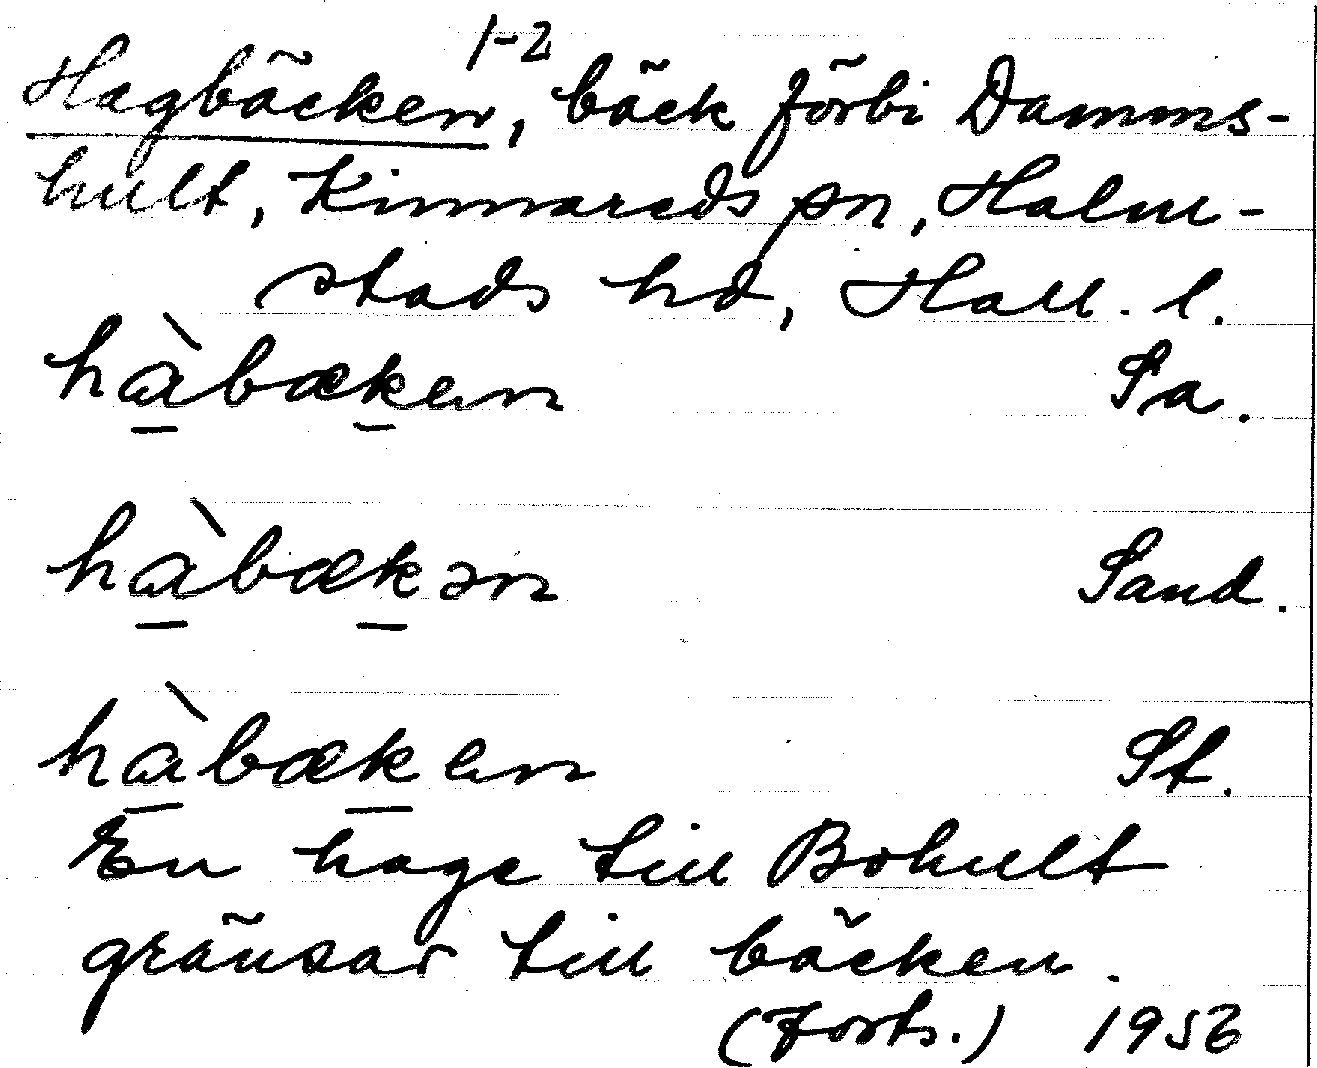 1-2
Hagbäcken, bäck förbi Damms-
hult, Kinnareds sn, Halm-
stads hd, Hall. l.
hàbæken Sa.
hàbækən Sand.
hàbæken St.
En hage till Bohult
gränsar till bäcken.
(Forts.) 1953